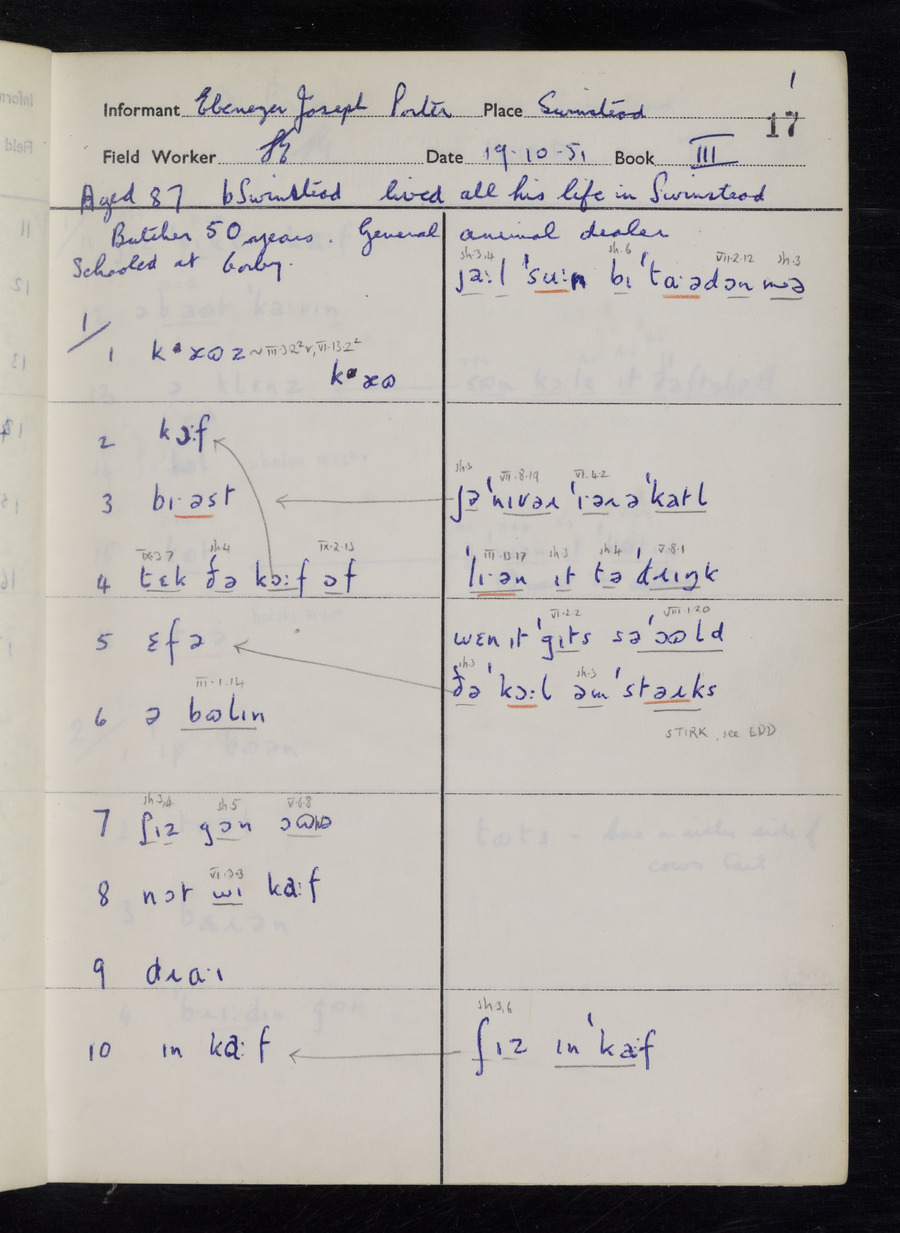 1
Informant Ebenezer Joseph Porter Place Swinstead 17
Field Worker Date 19·10·51 Book III
Aged 87 b Swinstead lived all his life in Swinstead
Butcher 50 years. General animal dealer
Schooled at Corby.
sh.3,4 sh.6 VII·2·12 sh.3
ʃəːl ˈsuːn bɪˈtaːədən mə
1/
1 kæɷz ~ III·3·2²r, VI·13·2²
kæɷ
2 kɔːf
sh.3 VII·8·19 VI·4·2
3 bɪ·əst ʃəˈnɪvəɹ ˈɪəɹəˈkatl
IX·3·7 sh.4 IX·2·13 III·13·17 sh.3 sh.4 V·8·1
4 tɛk ðə kɔːf əf ˈlɪən ɪt təˈdɹɪŋk
VI·2·2 VIII·1·20
5 ɛfə wɛn ɪtˈgɪts səˈɔɷld
sh.3 sh.3
ðəˈkɔːl əmˈstəɹks
III·1·14
6 ə bɷlɪn
STIRK, see EDD
sh 3,4 sh.5 V·6·8
7 ʃɪz gɔn
VI·3·3
8 nɔt wɪ kaːf
9 dɹaːɪ
sh 3,6
10 ɪn kaːf ʃɪz ɪnˈkaːf